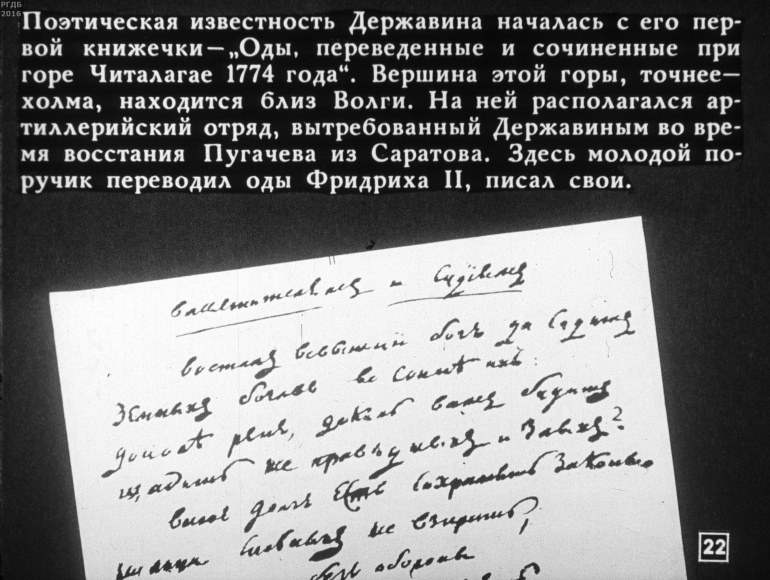 РГДБ
2016
Поэтическая известность Державина началась с его пер-
вой книжечки—„Оды, переведенные и сочиненные при
горе Читалагае 1774 года“. Вершина этой горы, точнее—
холма, находится близ Волги. На ней располагался ар-
тиллерийский отряд, вытребованный Державиным во вре-
мя восстания Пугачева из Саратова. Здесь молодой по-
ручик переводил оды Фридриха II, писал свои.
и
возсталъ всевышнїй богъ да судитъ
Земныхъ боговъ во сонмѣ ихъ:
доколѣ рекъ, доколь вамъ будетъ
щадить не праведныхъ и Злыхъ?
вашъ долгъ Есть сохранять Законы
не взирать,
безъ обороны
22